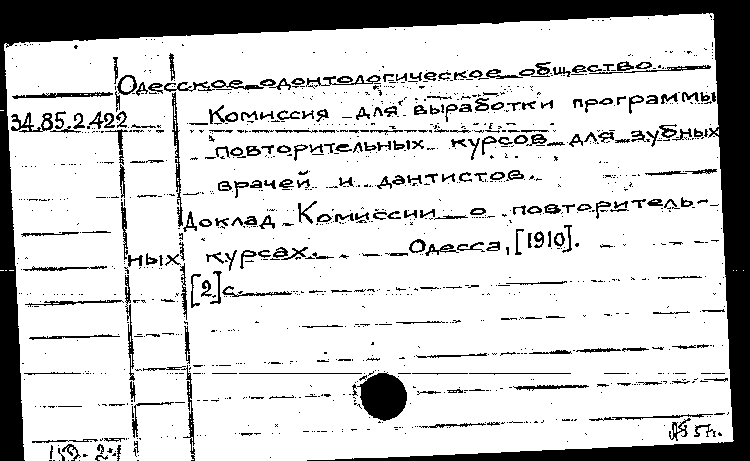 Одесское одонтологическое общество.
34.85.2.422 Комиссия для выработки программы
повторительных курсов для зубных
врачей и дантистов.
Доклад Комиссии о повторитель-
ных курсах. Одесса, [1910].
[2]с.
57г.